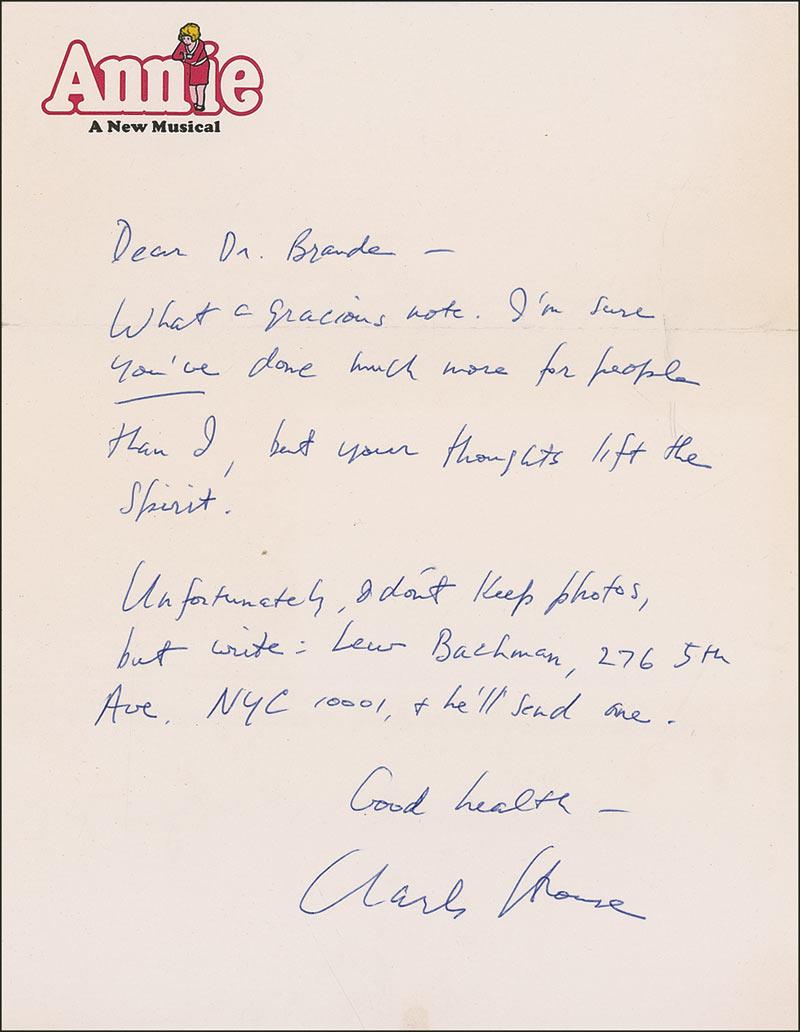 Annie
A New Musical
Dear Dr. Brande –
What a gracious note. I'm sure
you've done much more for people
than I, but your thoughts lift the
Spirit.
Unfortunately, I don't keep photos,
but write: Lew Bachman, 276 5th
Ave. NYC 10001, + he'll send one.
Good health –
Charles Strouse